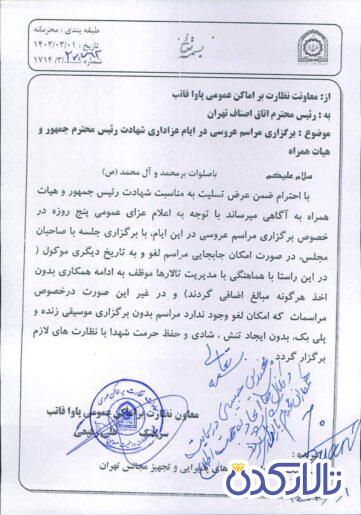 بسمه تعالی
طبقه بندی : محرمانه
تاریخ : ۱۴۰۳/۰۳/۰۱
شماره
۱۷۱۴/۳/
از: معاونت نظارت بر اماکن عمومی پاوا فاتب
به : رئیس محترم اتاق اصناف تهران
موضوع : برگزاری مراسم عروسی در ایام عزاداری شهادت رئیس محترم جمهور و
هیات همراه
سلام علیکم
باصلوات برمحمد و آل محمد (ص)
با احترام ضمن عرض تسلیت به مناسبت شهادت رئیس جمهور و هیات
همراه به آگاهی میرساند با توجه به اعلام عزای عمومی پنج روزه در
خصوص برگزاری مراسم عروسی در این ایام، با برگزاری جلسه با صاحبان
مجلس، در صورت امکان جابجایی مراسم لغو و به تاریخ دیگری موکول (
در این راستا با هماهنگی با مدیریت تالارها موظف به ادامه همکاری بدون
اخذ هرگونه مبالغ اضافی گردند) و در غیر این صورت درخصوص
مراسمات که امکان لغو وجود ندارد مراسم بدون برگزاری موسیقی زنده و
پلی بک، بدون ایجاد تنش ، شادی و حفظ حرمت شهدا با نظارت های لازم
برگزار گردد
معاون نظارت بر اماکن عمومی پاوا فاتب
سرهنگ
پذیرایی و تجهیز مجالس تهران
تالارکدن